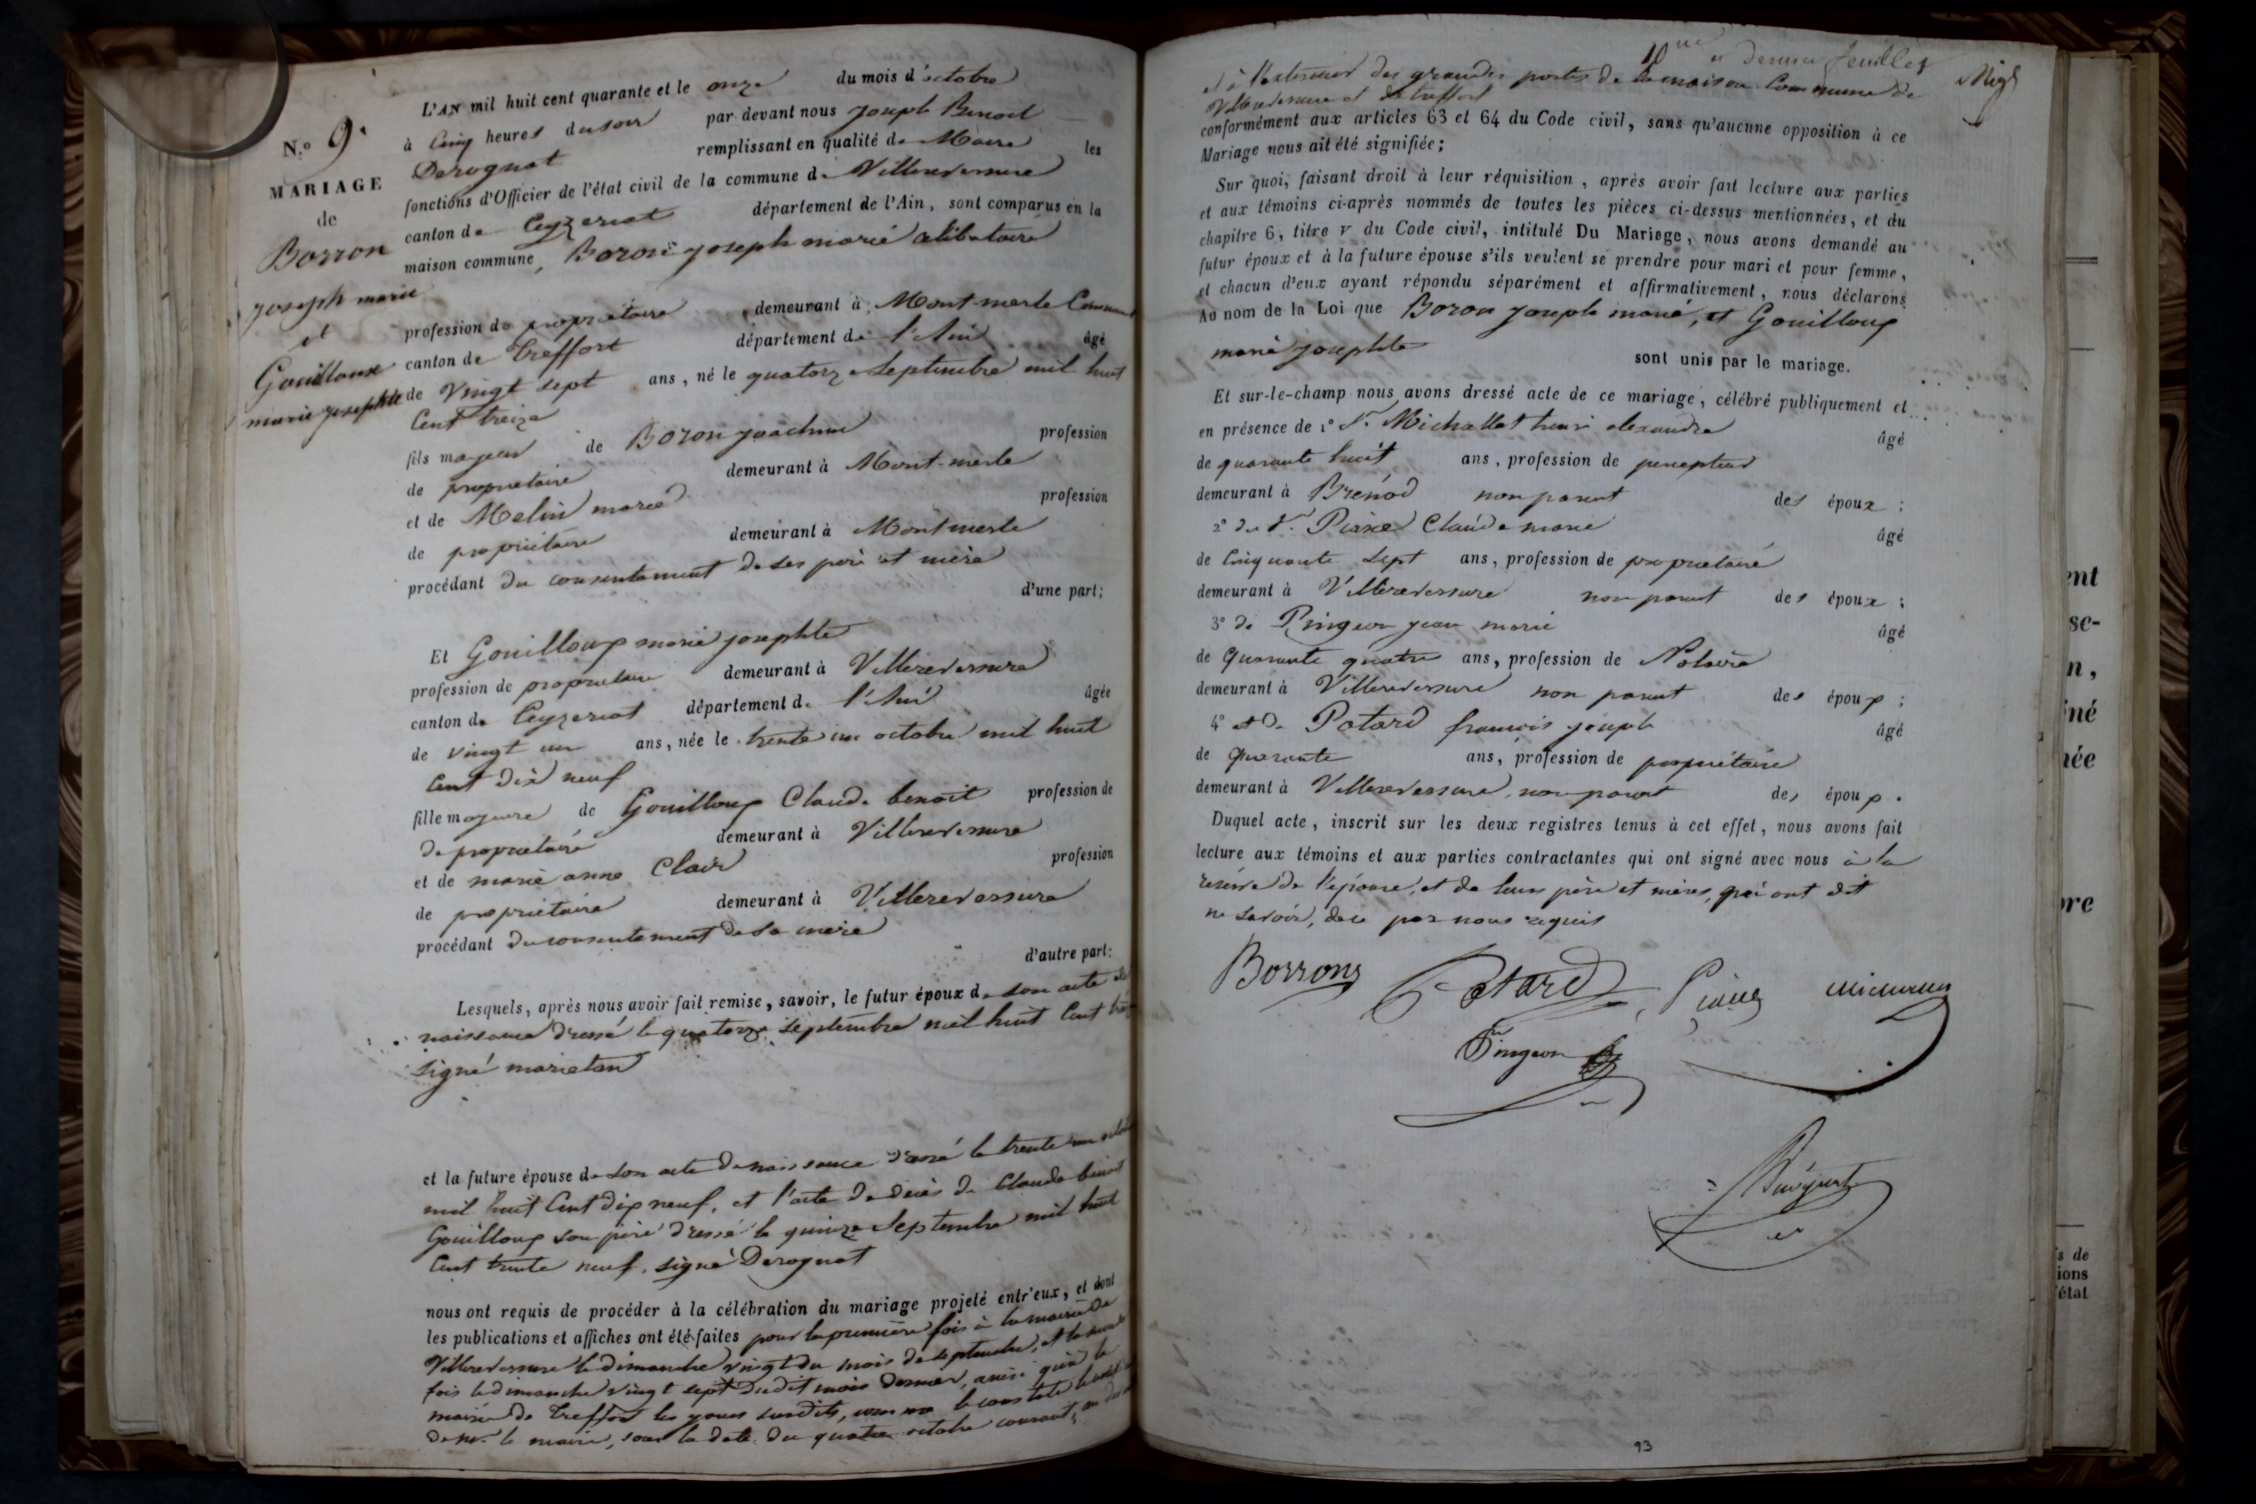 N.o 9.
MARIAGE
de
Borron
joseph marie
et
Gouilloux
marie josephte
L'AN mil huit cent quarante et le onze du mois d'octobre
à cinq heures du soir par-devant nous joseph Benoit
Derognat remplissant en qualité de Maire les
fonctions d'Officier de l'état civil de la commune de Villereversure
canton de Ceyzeriat département de l'Ain, sont comparus en la
maison commune, Boron joseph marie célibataire
profession de propriétaire demeurant à Mont-merle Commune
canton de Treffort département de l'Ain âgé
de vingt sept ans, né le quatorze Septembre mil huit
Cent treize
fils majeur de Boron joachim profession
de propriétaire demeurant à Mont-merle
et de Melin marie profession
de propriétaire demeurant à Montmerle
procédant du consentement de ses père et mère
d'une part;
Et Gouilloux marie josephte
profession de propriétaire demeurant à Villereversure
canton de Ceyzeriat département de l'Ain âgée
de vingt un ans, née le trente un octobre mil huit
Cent dix neuf
fille majeure de Gouilloux Claude benoit profession de
de propriétaire demeurant à Villereversure
et de marie anne Clair profession
de propriétaire demeurant à Villereversure
procédant du consentement de sa mère
d'autre part:
Lesquels, après nous avoir fait remise, savoir, le futur époux de son acte de
naissance dressé le quatorze Septembre mil huit Cent treize
signé marietan
et la future épouse de son acte de naissance dressé le trente un octobre
mil huit Cent dix neuf, et l'acte de décès de Claude benoit
Gouilloux son père dressé le quinze Septembre mil huit
Cent trente neuf, signé Derognat
nous ont requis de procéder à la célébration du mariage projeté entr'eux, et dont
les publications et affiches ont été faites pour la première fois à la mairie de
Villereversure le dimanche vingt du mois de septembre, et la seconde
fois le dimanche vingt sept dudit mois dernier, ainsi qu'à la
mairie de Treffort les jours susdits, comme le constate le certificat
de mr. le maire, sous la date du quatre octobre courant,
et dernier feuillet
et à l'extérieur des grandes portes de la maison Commune de
Villereversure et de treffort
conformément aux articles 63 et 64 du Code civil, sans qu'aucune opposition à ce
Mariage nous ait été signifiée;
Sur quoi, faisant droit à leur réquisition, après avoir fait lecture aux parties
et aux témoins ci-après nommés de toutes les pièces ci-dessus mentionnées, et du
chapitre 6, titre V du Code civil, intitulé Du Mariage, nous avons demandé au
futur époux et à la future épouse s'ils veulent se prendre pour mari et pour femme,
et chacun d'eux ayant répondu séparément et affirmativement, nous déclarons
Au nom de la Loi que Boron joseph marie, et Gouilloux
marie josephte sont unis par le mariage.
Et sur-le-champ nous avons dressé acte de ce mariage, célébré publiquement et
en présence de 1° Sr. Michallet henri alexandre âgé
de quarante huit ans, profession de percepteur
demeurant à Brénod non parent des époux;
2° du Sr. Pianet Claude marie âgé
de cinquante sept ans, profession de propriétaire
demeurant à Villereversure non parent des époux;
3° de Pingeon jean marie âgé
de Quarante quatre ans, profession de Notaire
demeurant à Villereversure non parent des époux;
4° et de Potard francois joseph âgé
de Quarante ans, profession de propriétaire
demeurant à Villereversure, non parent des époux.
Duquel acte, inscrit sur les deux registres tenus à cet effet, nous avons fait
lecture aux témoins et aux parties contractantes qui ont signé avec nous à la
réserve de l'épouse, et de leurs père et mères, qui ont dit
ne savoir, de ce par nous requis
Borrons Potard
Pingeon
93